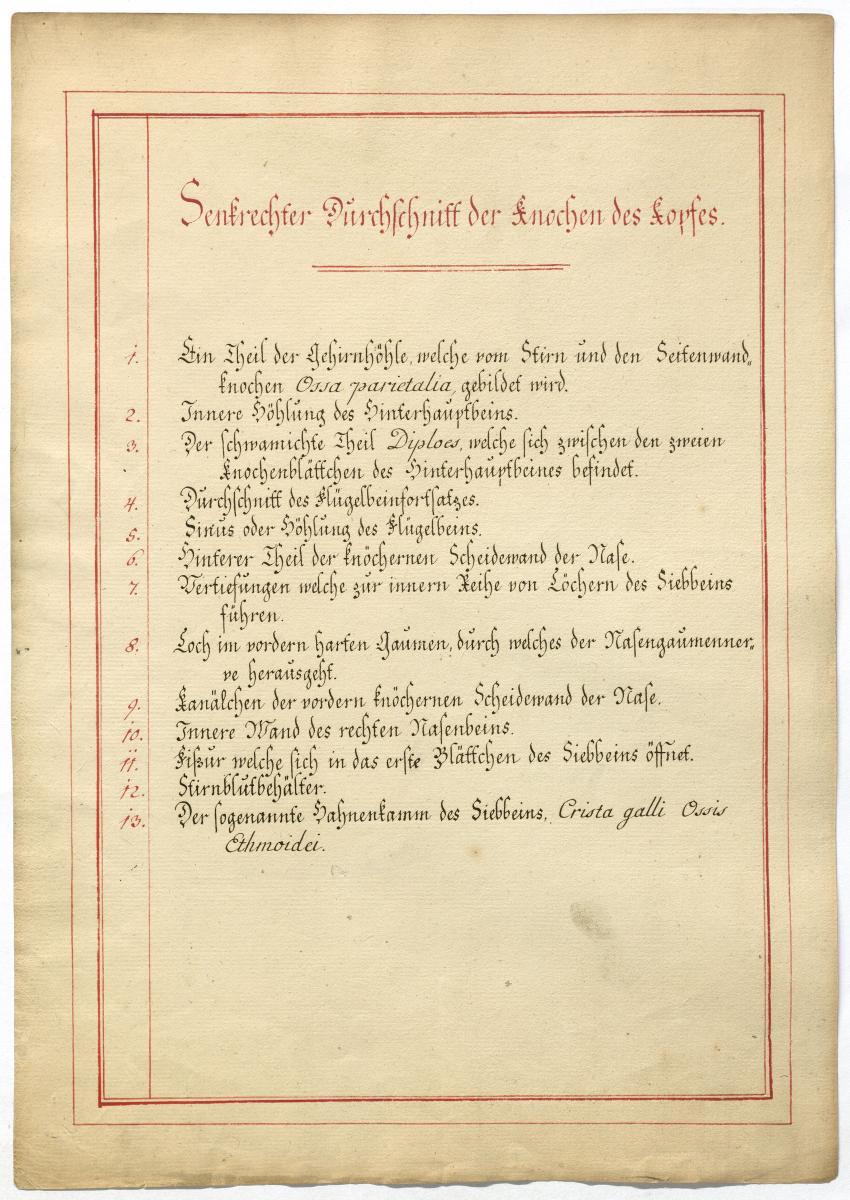 Senkrechter Durchschnitt der Knochen des Kopfes.
1. Ein Theil der Gehirnhöhle, welche vom Stirn und den Seitenwand„
knochen Ossa parietalia, gebildet wird.
2. Innere Höhlung des Hinterhauptbeins.
3. Der schwamichte Theil Diploes, welche sich zwischen den zweien
Knochenblättchen des Hinterhauptbeines befindet.
4. Durchschnitt des Flügelbeinfortsatzes.
5. Sinus oder Höhlung des Flügelbeins.
6. Hinterer Theil der knöchernen Scheidewand der Nase.
7. Vertiefungen welche zur innern Reihe von Löchern des Siebbeins
führen.
8. Loch im vordern harten Gaumen, durch welches der Nasengaumenner„
ve herausgeht.
9. Kanälchen der vordern knöchernen Scheidewand der Nase.
10. Innere Wand des rechten Nasenbeins.
11. Fißur welche sich in das erste Blättchen des Siebbeins öffnet.
12. Stirnblutbehälter.
13. Der sogenannte Hahnenkamm des Siebbeins, Crista galli Ossis
Ethmoidei.